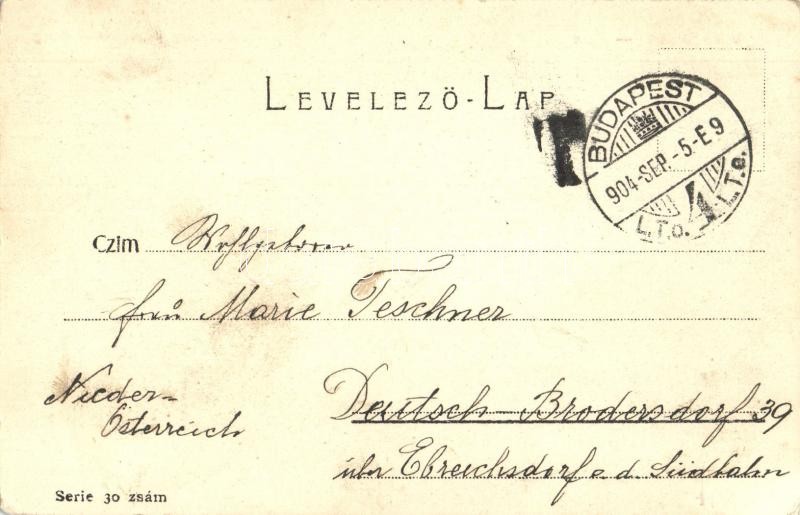 LEVELEZÖ-LAP
T
BUDAPEST
904-SEP.-5-E9
4
L.T.o. L.T.e.
Czim Wohlgeboren
Frau Marie Teschner
Nieder-
Österreich
Deutsch-Brodersdorf 39
über Ebreichsdorf a. d. Südbahn
Serie 30 zsám